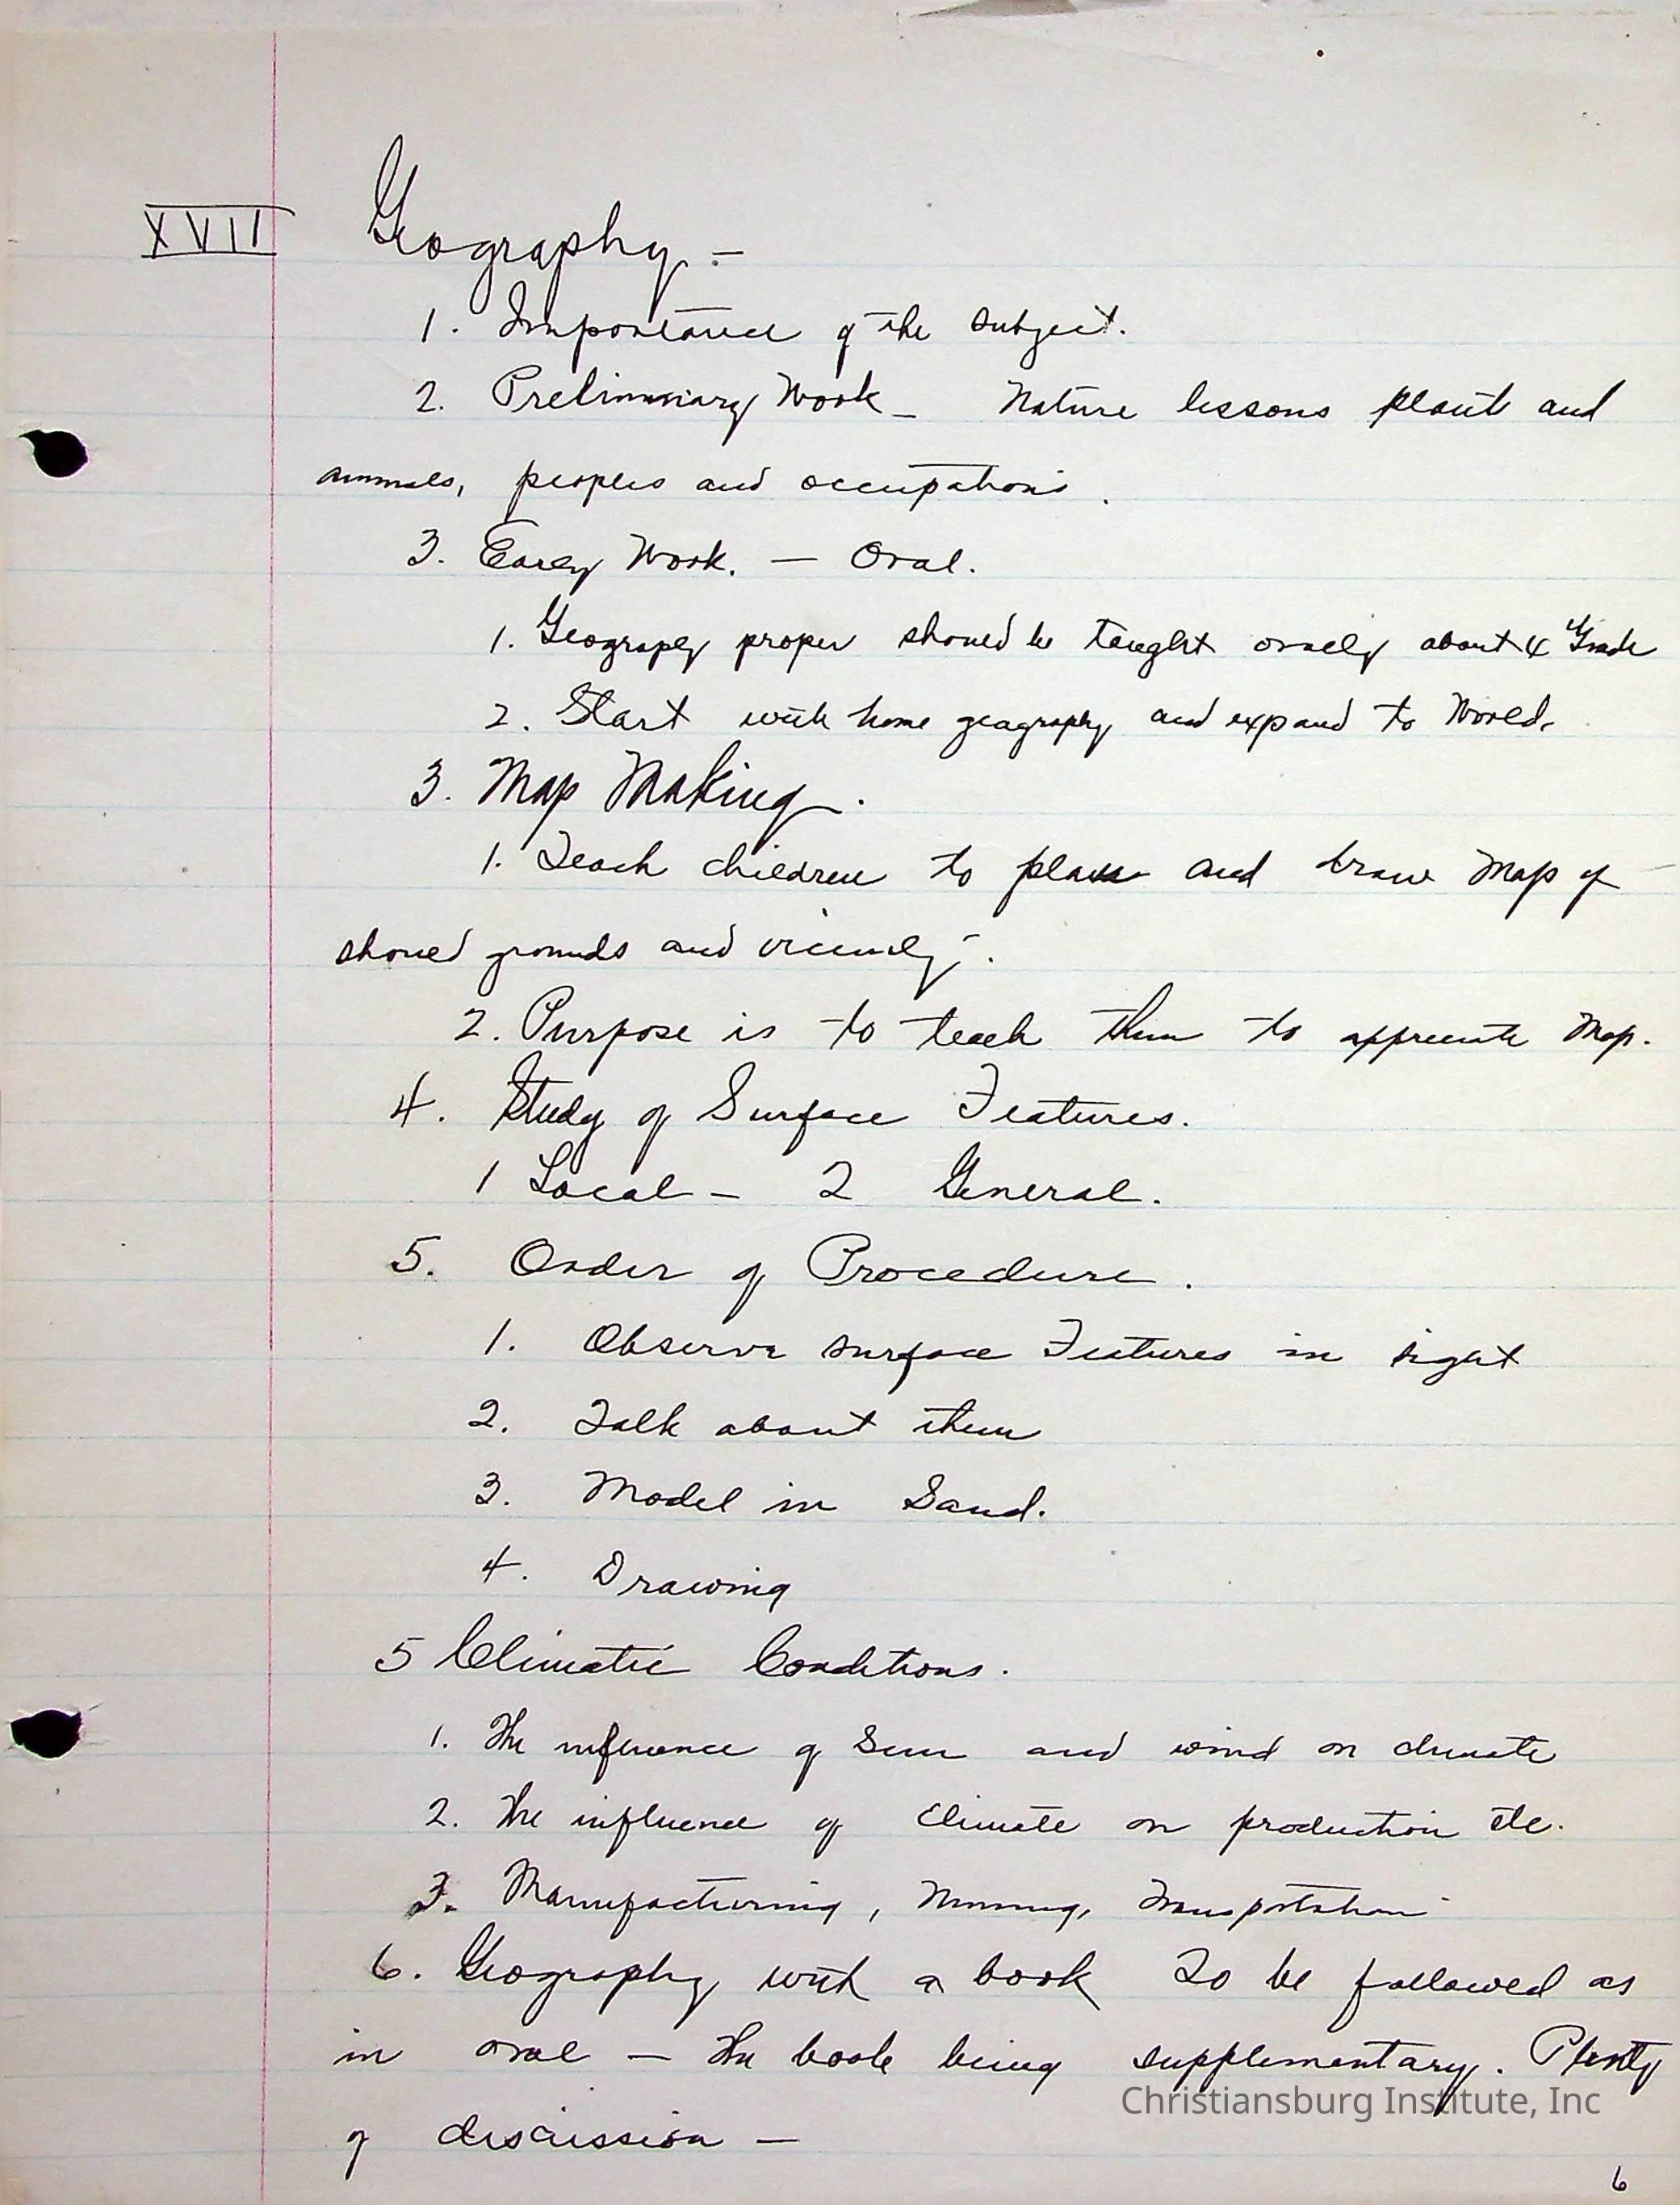 XVII Geography.-
1. Importance of the subject.
2. Preliminary Work - Nature lessons plants and
animals, peoples and occupations.
3. Early Work. - Oral.
1. Geography proper should be taught orally about 4 Grade
2. Start with home geography and expand to World.
3. Map Making.
1. Teach children to plan and draw map of
school grounds and vicinity.
2. Purpose is to teach them to appreciate Map.
4. Study of Surface Features.
1 Local - 2 General.
5. Order of Procedure.
1. Observe surface Features in sight
2. Talk about them
3. Model in Sand.
4. Drawing
5 Climatic Conditions.
1. The influence of Sun and wind on climate
2. The influence of Climate on production etc.
3. Manufacturing, Mining, Transportation
6. Geography with a book To be followed as
in oral - The book being supplementary. Plenty
of discussion -
Christiansburg Institute, Inc
6